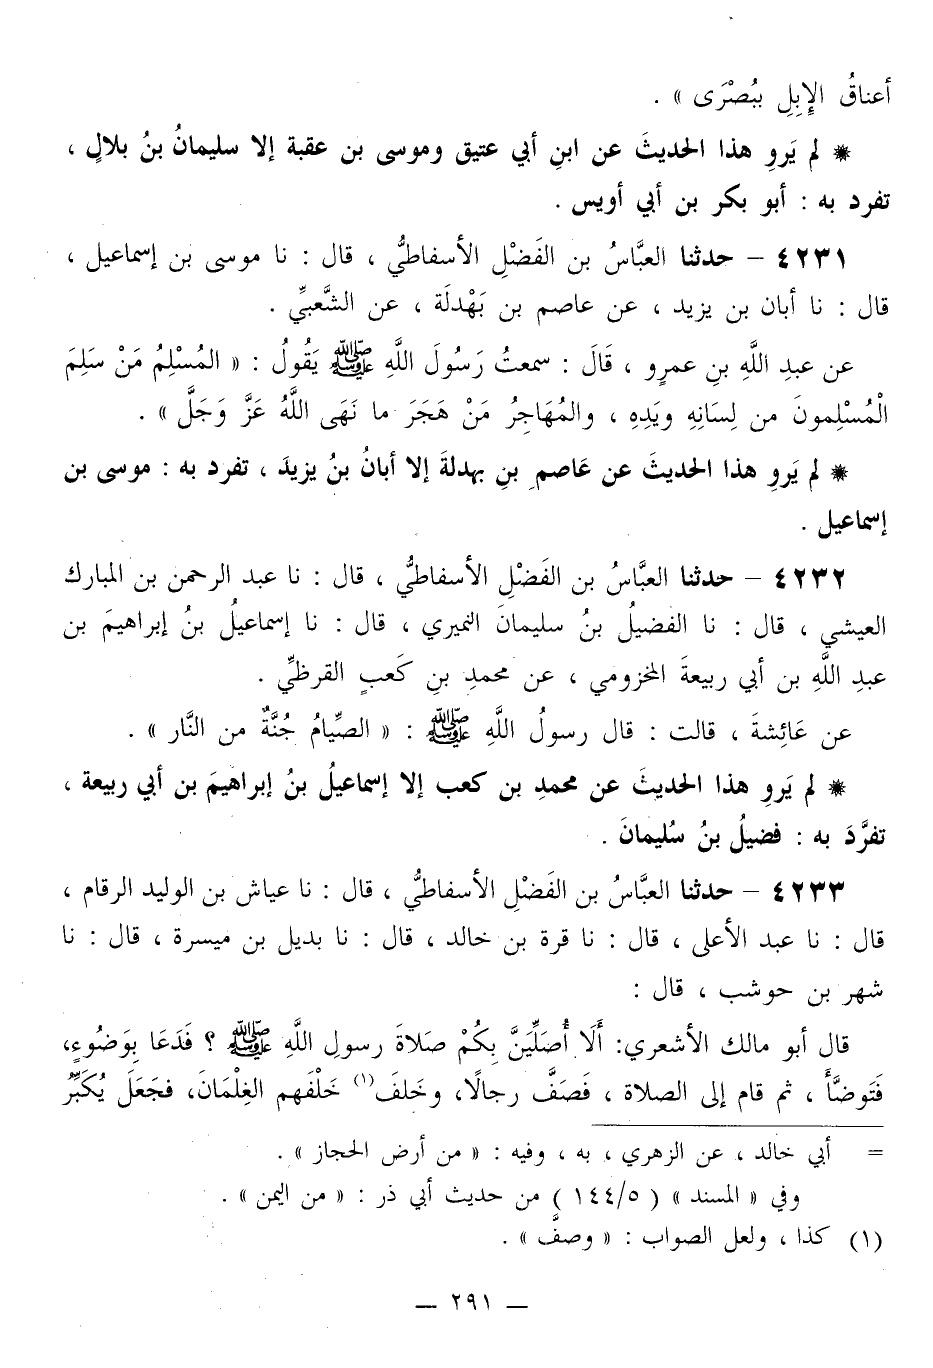 أعناقُ الإِبِلِ ببُصْرَى » .
* لم يَروِ هذا الحديثَ عن ابنِ أبي عتيق وموسى بن عقبة إلا سليمانُ بنُ بلالٍ ،
تفرد به : أبو بكر بن أبي أويس .
٤٢٣١ – حدثنا العبَّاسُ بن الفَضْلِ الأسفاطيُّ ، قال : نا موسى بن إسماعيل ،
قال : نا أبان بن يزيد ، عن عاصم بن بَهْدلَة ، عن الشَّعبيِّ .
عن عبدِ اللَّهِ بنِ عمرٍو ، قَالَ : سمعتُ رَسُولَ اللَّهِ ﷺ يَقُولُ : « المُسْلِمُ مَنْ سَلِمَ
الْمُسْلِمونَ من لِسَانِهِ ويَدِهِ ، والمُهَاجِرُ مَنْ هَجَرَ ما نَهَى اللَّهُ عَزَّ وَجَلَّ » .
* لم يَروِ هذا الحديثَ عن عَاصمِ بنِ بهدلةَ إلا أبانُ بنُ يزيدَ ، تفرد به : موسى بن
إسماعيل .
٤٢٣٢ – حدثنا العبَّاسُ بن الفَضْلِ الأسفاطيُّ ، قال : نا عبد الرحمن بن المبارك
العيشي ، قال : نا الفضيلُ بنُ سليمانَ النميري ، قال : نا إسماعيلُ بنُ إبراهيمَ بن
عبدِ اللَّهِ بن أبي ربيعةَ المخزومي ، عن محمدِ بنِ كَعبٍ القرظيِّ .
عن عَائِشةَ ، قالت : قال رسولُ اللَّهِ ﷺ : « الصِّيامُ جُنَّةٌ من النَّار » .
* لم يَروِ هذا الحديثَ عن محمدِ بن كعب إلا إسماعيلُ بنُ إبراهيمَ بن أبي ربيعة ،
تفرَّدَ به : فضيلُ بنُ سُليمانَ .
٤٢٣٣ – حدثنا العبَّاسُ بن الفَضْلِ الأسفاطيُّ ، قال : نا عياش بن الوليد الرقام ،
قال : نا عبد الأعلى ، قال : نا قرة بن خالد ، قال : نا بديل بن ميسرة ، قال : نا
شهر بن حوشب ، قال :
قال أبو مالك الأشعري: أَلَا أُصَلِّيَنَّ بِكُمْ صَلاةَ رسولِ اللَّهِ ﷺ ؟ فَدَعَا بِوَضُوءٍ،
فَتَوضَّأَ ، ثم قام إلى الصلاة ، فَصَفَّ رجالًا، وخَلفَ(١) خَلْفَهم الغِلْمَانَ، فجَعَلَ يُكَبِّرُ
= أبي خالد ، عن الزهري ، به ، وفيه : « من أرض الحجاز » .
وفي « المسند » ( ٥/١٤٤ ) من حديث أبي ذر : « من اليمن » .
(١) كذا ، ولعل الصواب : « وصفَّ » .
— ٢٩١ —